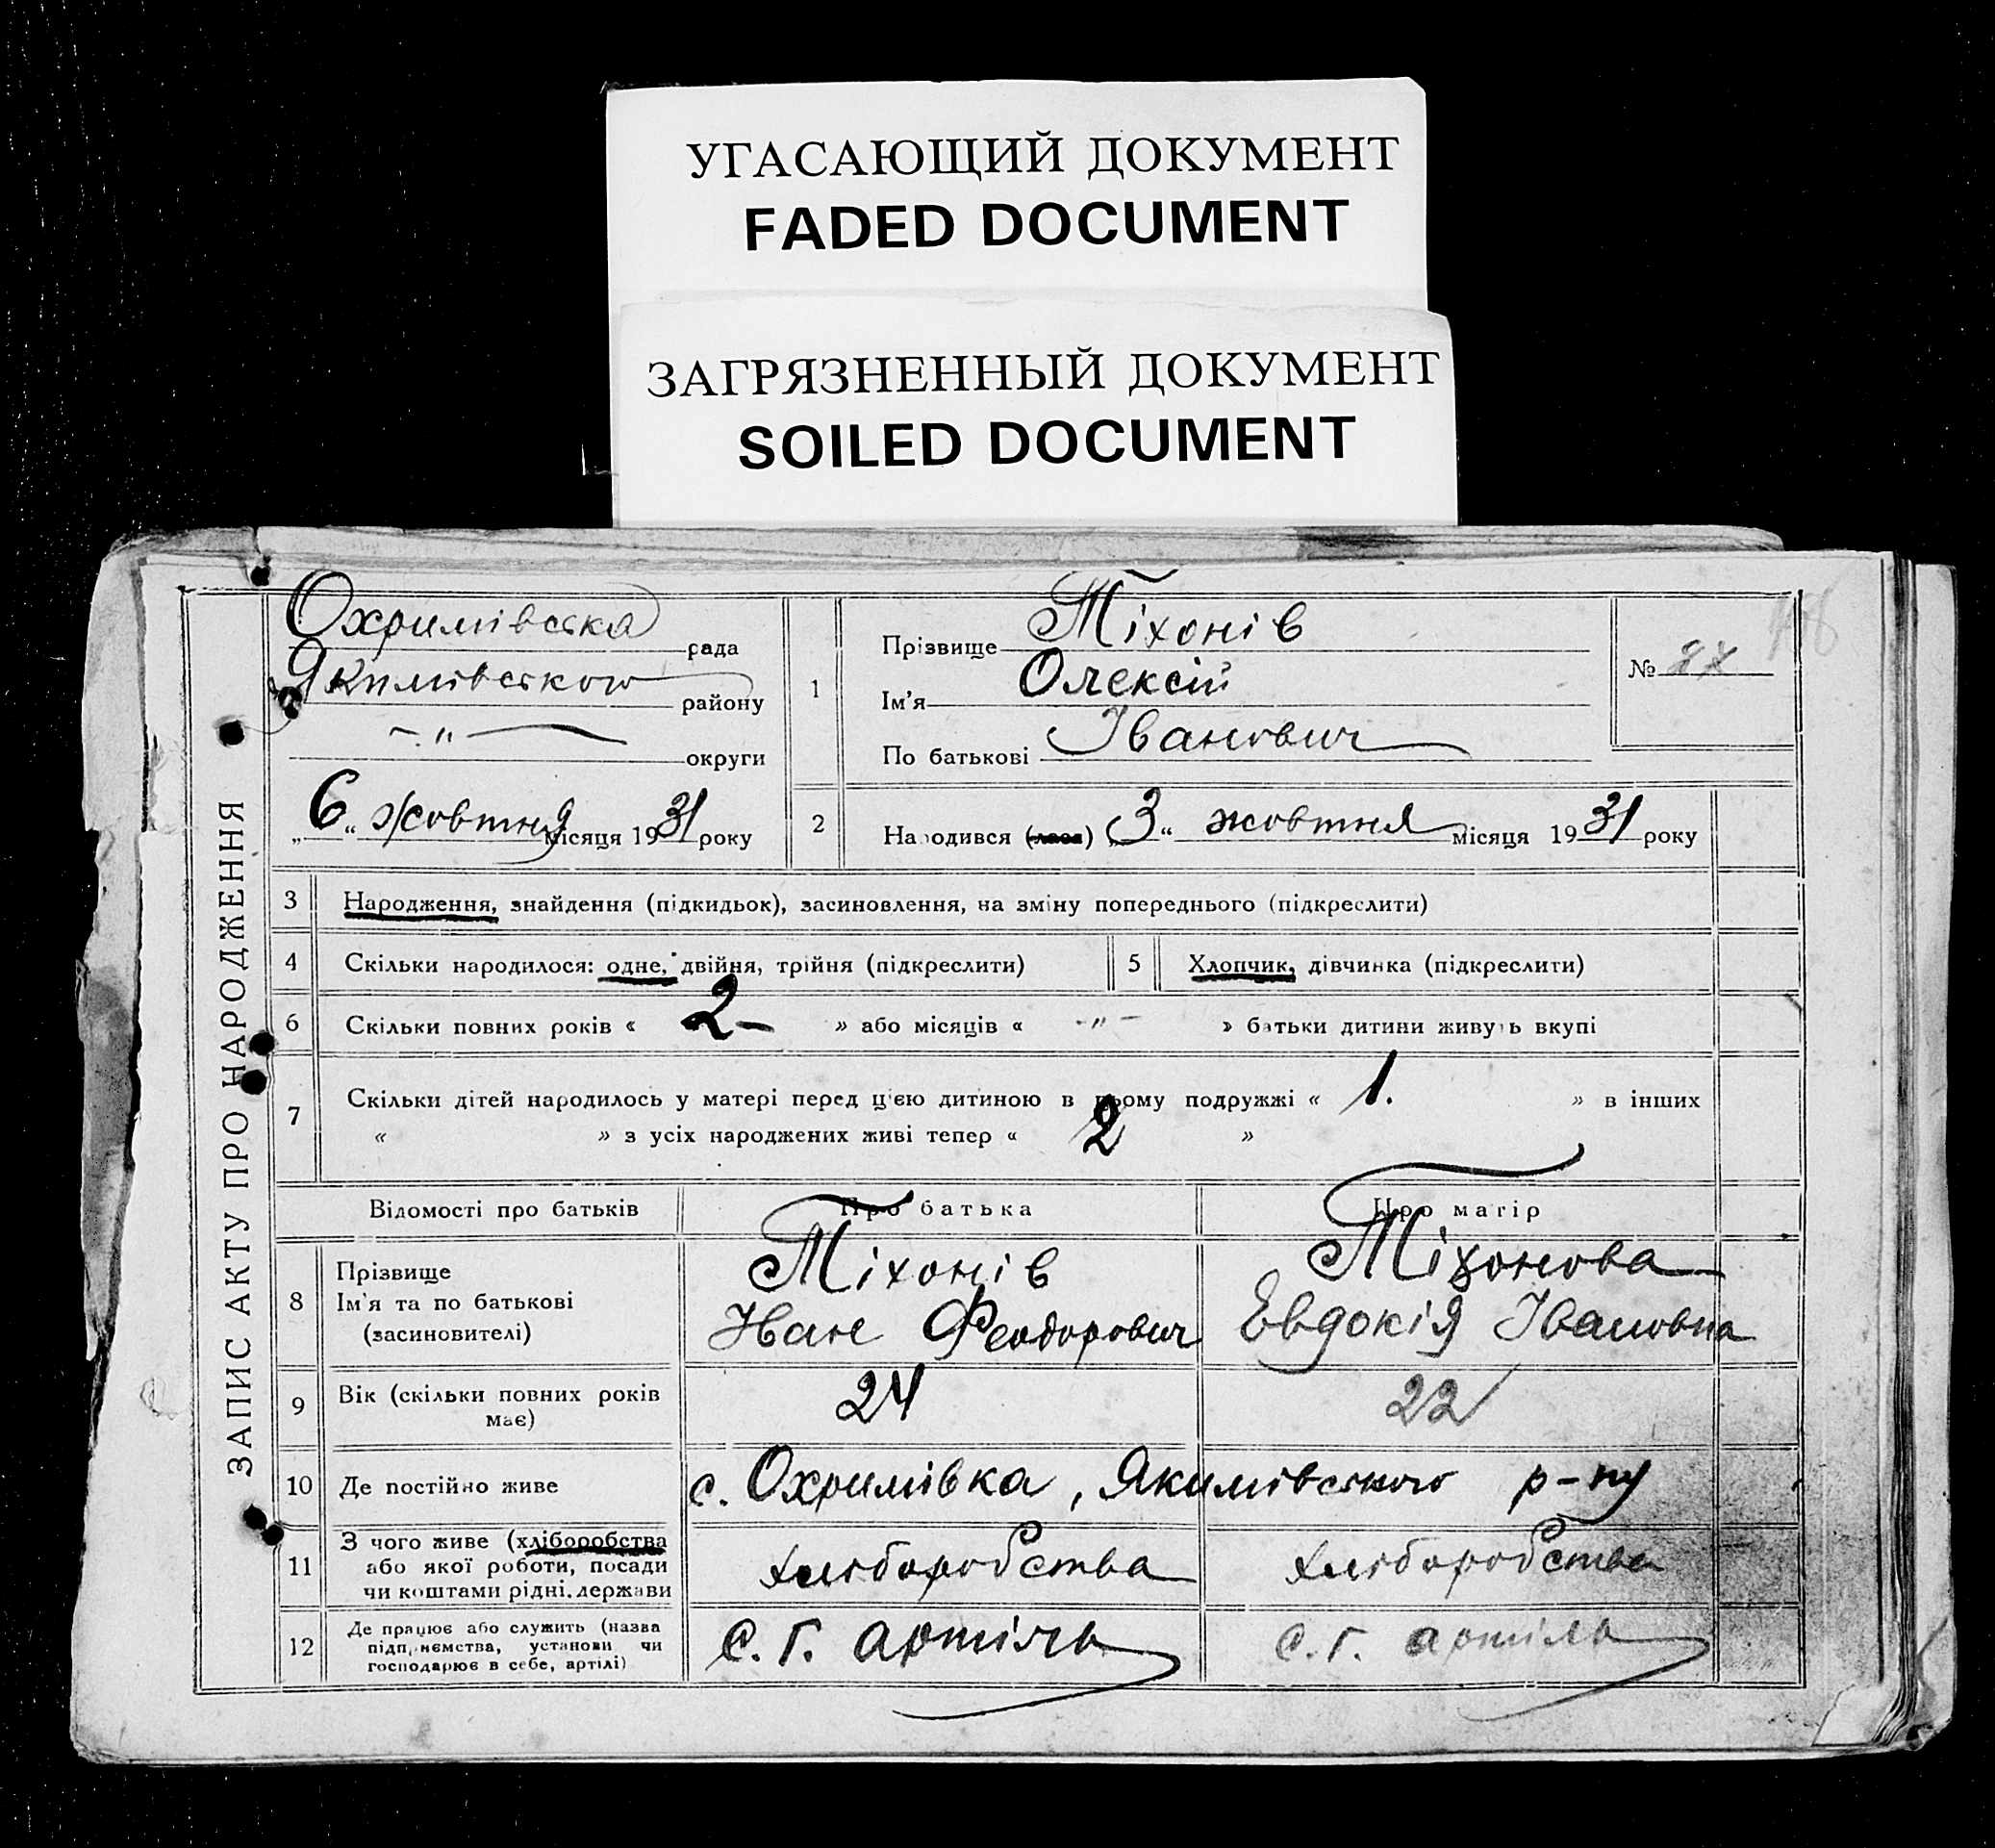 УГАСАЮЩИЙ ДОКУМЕНТ
FADED DOCUMENT
ЗАГРЯЗНЕННЫЙ ДОКУМЕНТ
SOILED DOCUMENT
ЗАПИС АКТУ ПРО НАРОДЖЕННЯ
Охримівська рада
Якимівського району
— " — округи
„6“ жовтня місяця 1931 року
1 Прізвище Тіхонів
Ім'я Олексій
По батькові Іванович
№ 27
2 Народився (лася) „3“ жовтня місяця 1931 року
3 Народження, знайдення (підкидьок), засиновлення, на зміну попереднього (підкреслити)
4 Скільки народилося: одне, двійня, трійня (підкреслити) 5 Хлопчик, дівчинка (підкреслити)
6 Скільки повних років « 2 — » або місяців « - " - » батьки дитини живуть вкупі
7 Скільки дітей народилось у матері перед ц'єю дитиною в цьому подружжі « 1. » в інших
« » з усіх народжених живі тепер « 2 »
Відомості про батьків Про батька Про матір
8 Прізвище Тіхонів Тіхонова
Ім'я та по батькові Іван Феодорович Евдокія Івановна
(засиновителі)
9 Вік (скільки повних років має) 24 22
10 Де постійно живе с. Охримівка, Якимівського р-ну
11 З чого живе (хліборобства
або якої роботи, посади хліборобства хліборобства
чи коштами рідні, держави
12 Де працює або служить (назва
підприємства, установи чи С. Г. артіль С. Г. артіль
господарює в себе, артілі)